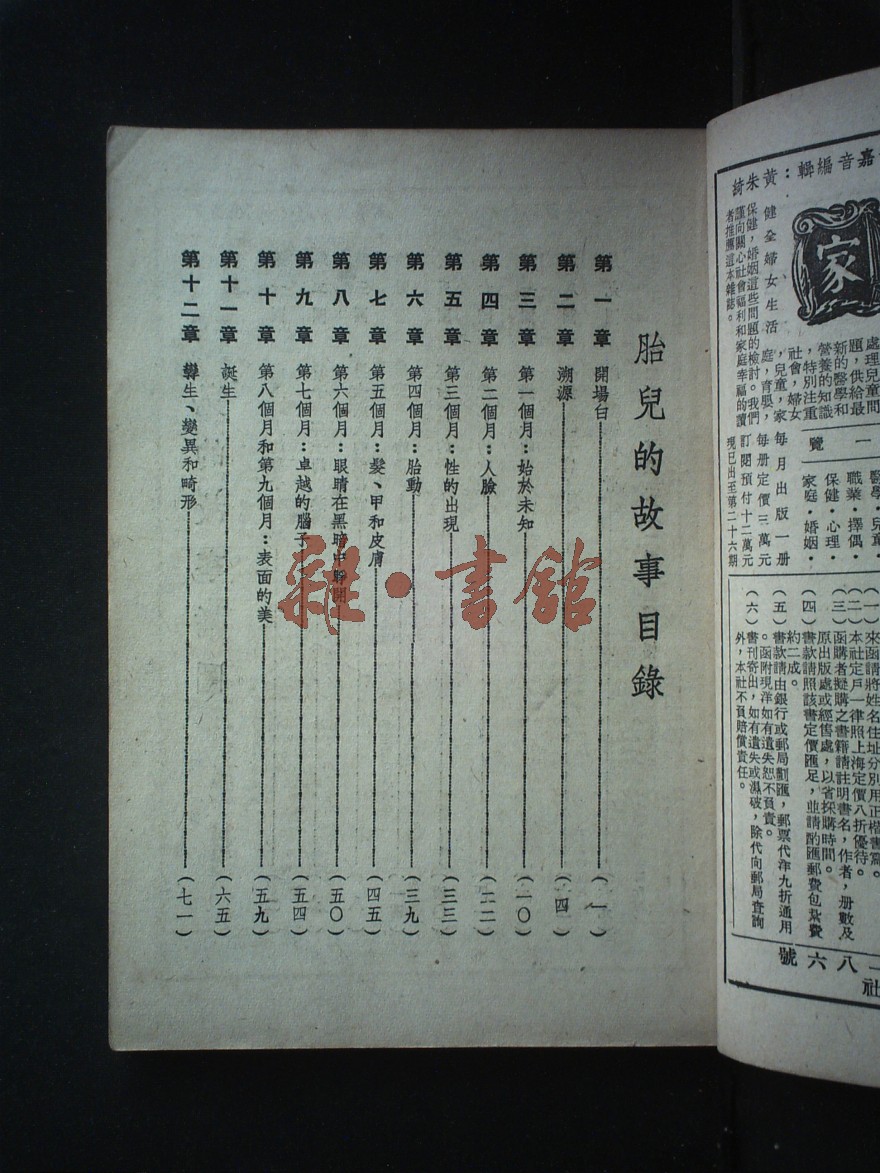 胎兒的故事目錄
第一章 開場白（一）
第二章 溯源（四）
第三章 第一個月：始於未知（一〇）
第四章 第二個月：人臉（二二）
第五章 第三個月：性的出現（三三）
第六章 第四個月：胎動（三九）
第七章 第五個月：髮、甲和皮膚（四五）
第八章 第六個月：眼睛在黑暗中睜開（五〇）
第九章 第七個月：卓越的腦子（五四）
第十章 第八個月和第九個月：表面的美（五九）
第十一章 誕生（六五）
第十二章 孿生、變異和畸形（七一）
雜·書館
嘉音編輯：黃朱綺
家
處理兒童問
題，供給最
新的醫學和
營養的知識
，特別注重
社會，婦女
，兒童，家
庭，育嬰，
健全婦女生活
保健，婚姻這些問題的檢討。我們
謹向關心社會福利和家庭幸福的讀
者推薦這本雜誌。
一覽
醫學·兒童·
職業·擇偶·
保健·心理·
家庭·婚姻·
每月出版一册
每册定價三萬元
訂閱預付十二萬元
現已出至第二十六期
（一）來函請將姓名住址分別用正楷書寫。
（二）本社定戶一律照上海定價八折優待。
（三）函購者擬購之書籍請註明書名，作者，册數及
原出版處或經售處，以省採購時間。
（四）書款請照該書定價匯足，並請酌匯郵費包紮費
約二成。
（五）書款請由銀行或郵局劃匯，郵票代洋九折通用
。函附現洋如有遺失恕不負責。
（六）書刊寄出，如有遺失或濕破，除代向郵局查詢
外，本社不負賠償責任。
八六號
社